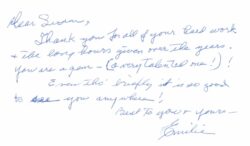 Dear Susan,
Thank you for all of your hard work
& the long hours given over the years.
You are a gem – (a very talented one!)!
Even tho' briefly it is so good
to see you anywhere!
Best to you & yours –
Emilie